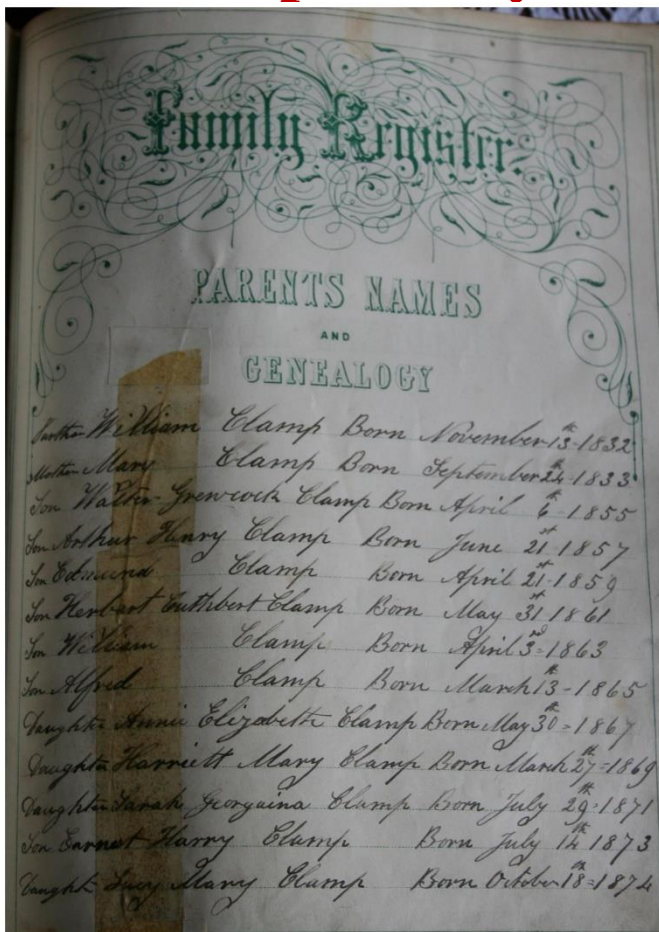 Family Register.
PARENTS NAMES
AND
GENEALOGY
William Clamp Born November 13th 1832
Mother Mary Clamp Born September 24th 1833
Son Walter Grewcock Clamp Born April 6th 1855
Son Arthur Henry Clamp Born June 21st 1857
Son Edmund Clamp Born April 21st 1859
Son Herbert Cuthbert Clamp Born May 31st 1861
Son William Clamp Born April 3rd 1863
Son Alfred Clamp Born March 13th 1865
Daughter Annie Elizabeth Clamp Born May 30th 1867
Daughter Harriett Mary Clamp Born March 27th 1869
Daughter Sarah Georgaina Clamp Born July 29th 1871
Son Earnest Harry Clamp Born July 14th 1873
Daught Lucy Mary Clamp Born October 18th 1874